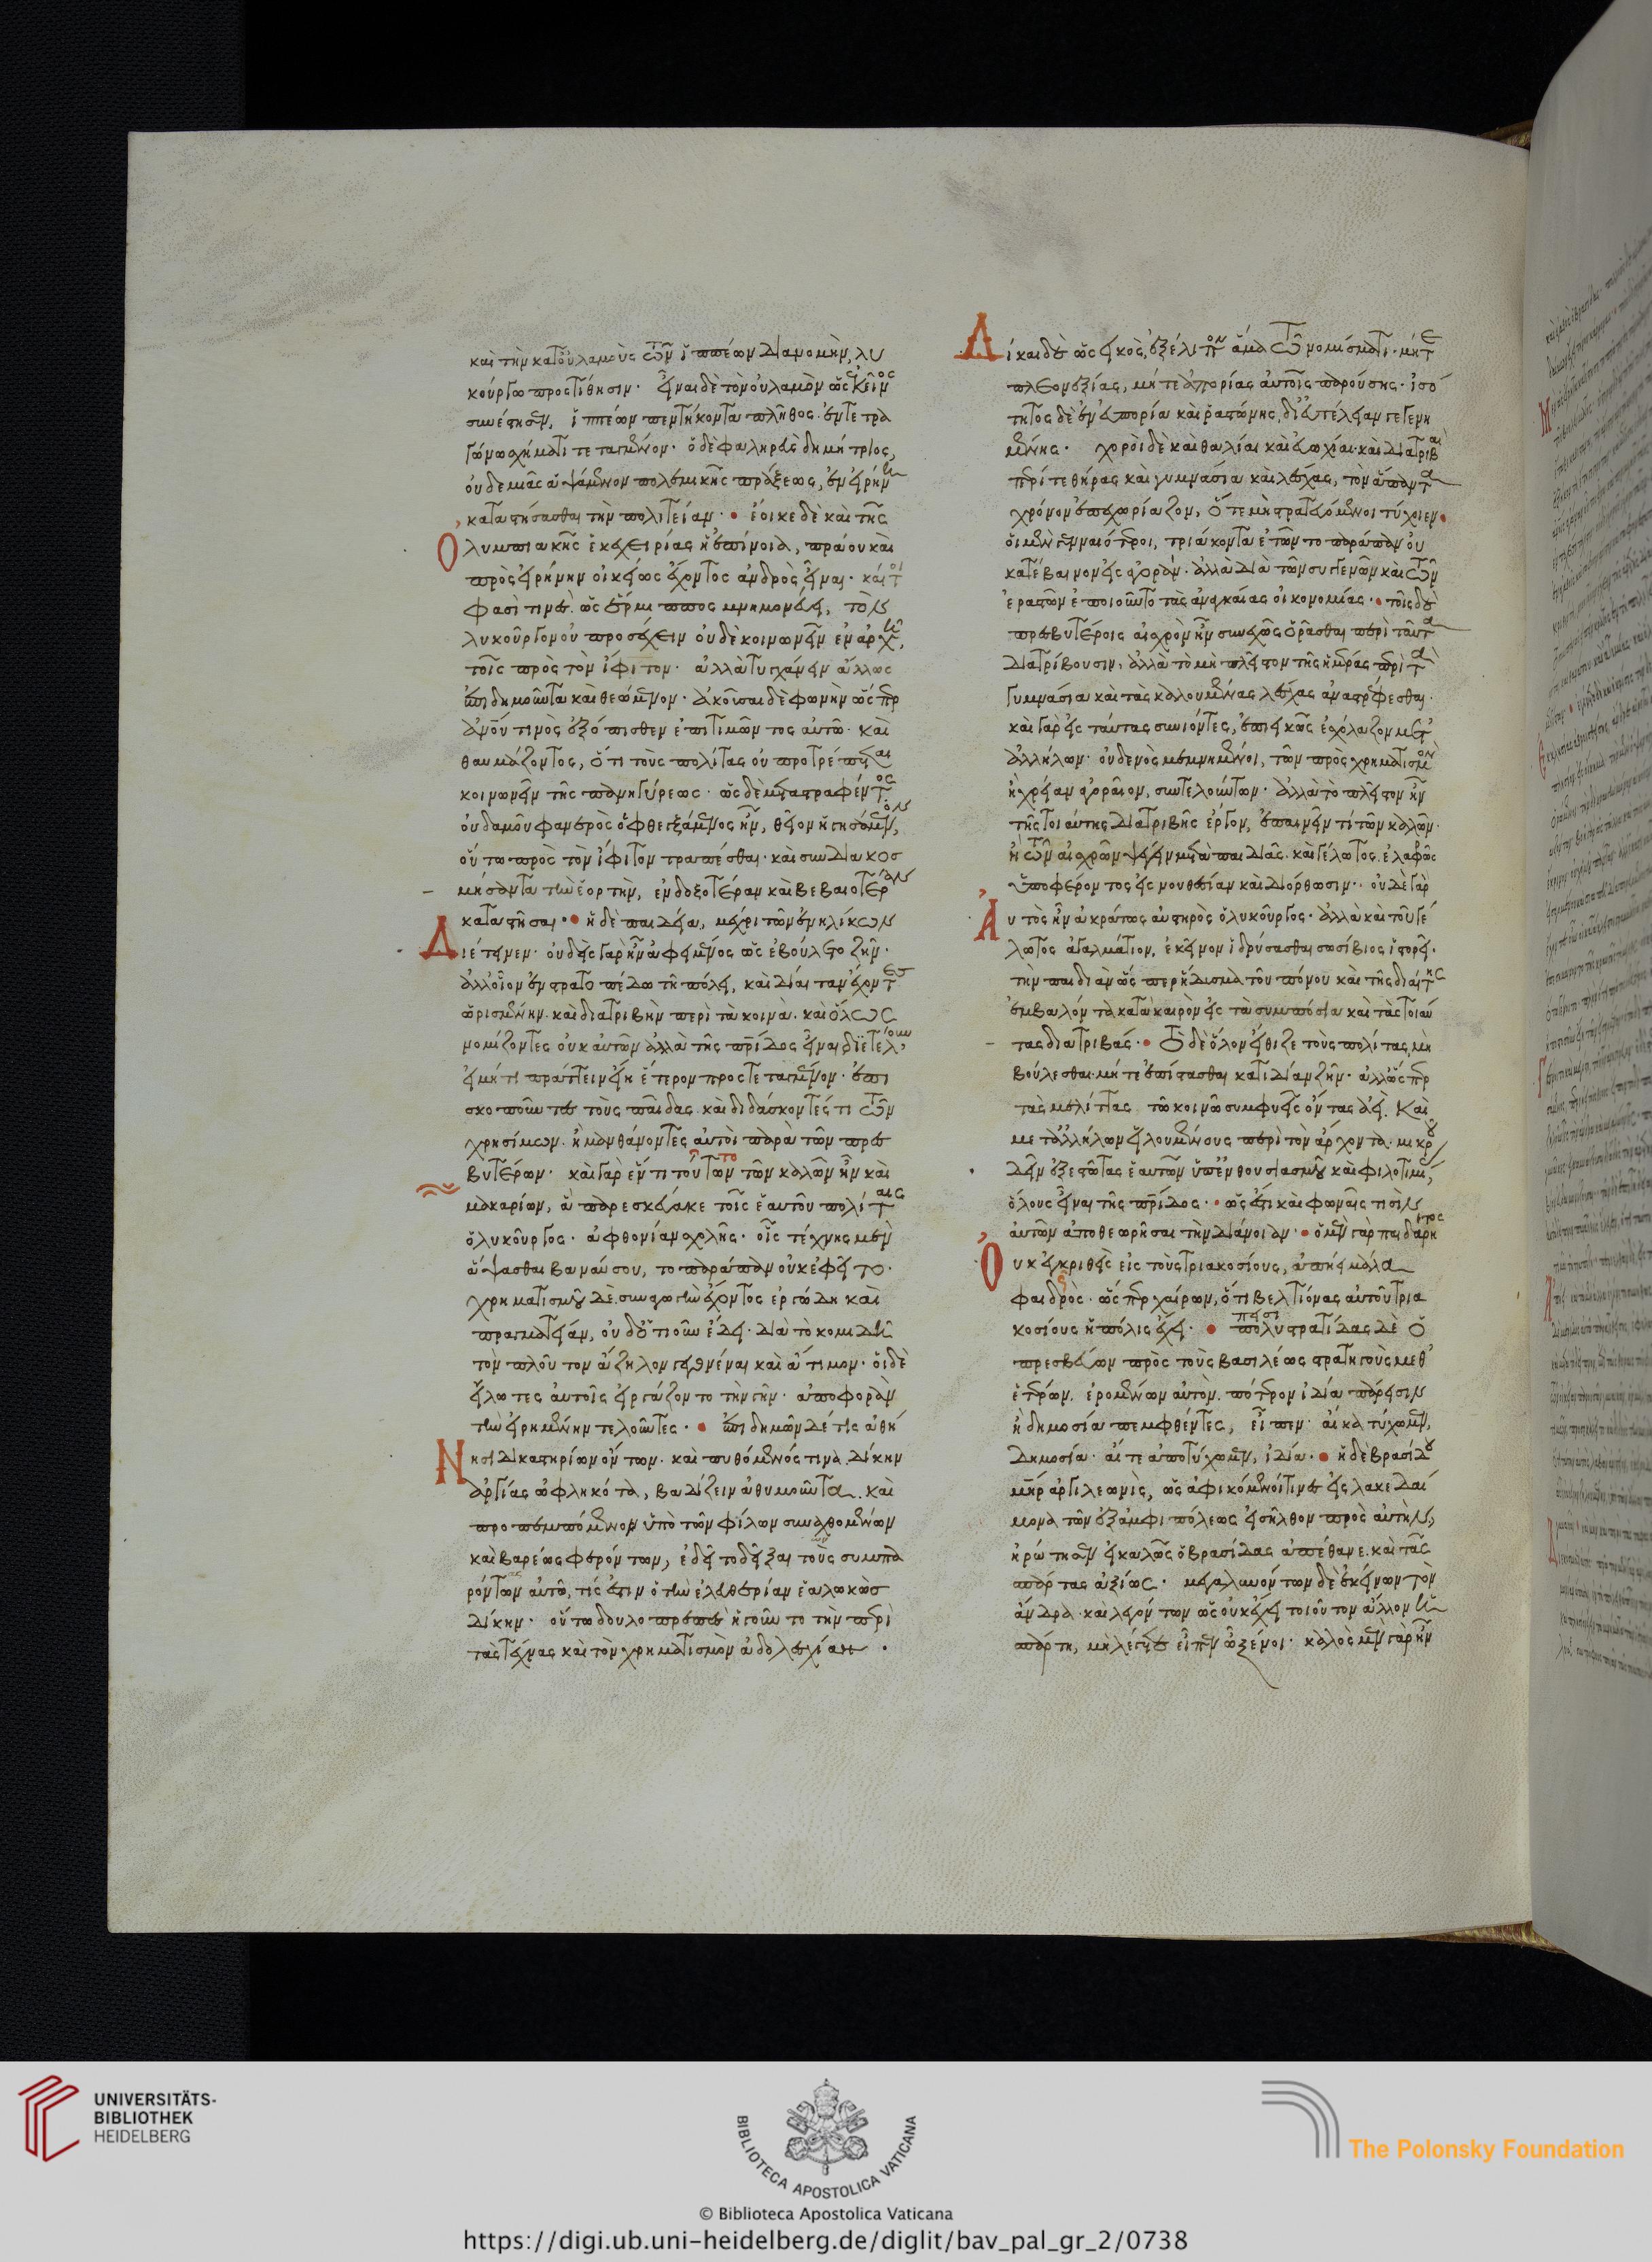 καὶ τὴν κατ' οὐλαμοὺς τῶν ἱππέων διανομὴν, λυ
κούργω προστίθησιν· εἶναι δὲ τὸν οὐλαμὸν ὡς ἐκεῖνος
συνέστησεν, ἱππέων πεντήκοντα πλῆθος ἐν τετρα
γώνω σχήματι τεταγμένον· ὁ δὲ φαληρεὺς δημήτριος,
οὐδεμιᾶς ἁψάμενον πολεμικῆς πράξεως, ἐν εἰρήνη
καταστήσασθαι τὴν πολιτείαν· ἔοικε δὲ καὶ τῆς
Ὀλυμπιακῆς ἐκεχειρίας ἡ ἐπίνοια, πράου καὶ
πρὸς εἰρήνην οἰκείως ἔχοντος ἀνδρὸς εἶναι· καίτοι
φασί τινες ὡς ἕρμιππος μνημονεύει, τὸν
λυκοῦργον οὐ προσέχειν οὐδὲ κοινωνεῖν ἐν ἀρχῆ,
τοῖς πρὸς τὸν ἴφιτον· ἀλλὰ τυγχάνειν ἄλλως
ἐπιδημοῦντα καὶ θεώμενον· ἀκοῦσαι δὲ φωνὴν ὥσπερ
ἀνθρώπου τινὸς ἐξόπισθεν ἐπιτιμῶντος αὐτῶ· καὶ
θαυμάζοντος, ὅτι τοὺς πολίτας οὐ προτρέπεται
κοινωνεῖν τῆς πανηγύρεως· ὡς δὲ μεταστραφέντος
οὐδαμοῦ φανερὸς ὁ φθεγξάμενος ἦν, θεῖον ἡγησάμενον,
οὕτω πρὸς τὸν ἴφιτον τραπέσθαι· καὶ συνδιακοσ
μήσαντα τὴν ἑορτὴν, ἐνδοξοτέραν καὶ βεβαιοτέραν
καταστῆσαι· ἡ δὲ παιδεία, μέχρι τῶν ἐνηλίκων
Διέτεινεν· οὐδεὶς γὰρ ἦν ἀφειμένος ὡς ἐβούλετο ζῆν·
ἀλλ' οἷον ἐν στρατοπέδω τῆ πόλει, καὶ δίαιταν ἔχοντες
ὡρισμένην· καὶ διατριβὴν περὶ τὰ κοινὰ· καὶ ὅλως
νομίζοντες οὐχ αὑτῶν ἀλλὰ τῆς πατρίδος εἶναι διετέλουν,
εἰ μή τι πράττειν εἴη ἕτερον προστεταγμένον· ἐπι
σκοποῦντες τοὺς παῖδας καὶ διδάσκοντές τι τῶν
χρησίμων· ἢ μανθάνοντες αὐτοὶ παρὰ τῶν πρεσ
βυτέρων· καὶ γὰρ ἕν τι τοῦτο τῶν καλῶν ἦν καὶ
μακαρίων, ἃ παρεσκεύακε τοῖς ἑαυτοῦ πολίταις
ὁ λυκοῦργος· ἀφθονίαν σχολῆς· οἷς τέχνης μὲν
ἅψασθαι βαναύσου, τοπαράπαν οὐκ ἐφεῖτο·
χρηματισμοῦ δὲ συναγωγὴν ἔχοντος ἐργώδη καὶ
πραγματείαν, οὐδ' ὁτιοῦν ἔδει· διὰ τὸ κομιδῆ
τὸν πλοῦτον ἄζηλον γεγονέναι καὶ ἄτιμον· οἱ δὲ
εἵλωτες αὐτοῖς εἰργάζοντο τὴν γῆν· ἀποφορὰν
τὴν εἰρημένην τελοῦντες· ἐπιδημῶν δέ τις ἀθή
Νησι δικαστηρίων ὄντων· καὶ πυθόμενός τινα δίκην
ἀργίας ὠφληκότα, βαδίζειν ἀθυμοῦντα· καὶ
προπεμπόμενον ὑπὸ τῶν φίλων συναχθομένων
καὶ βαρέως φερόντων, ἐδεῖτο δεῖξαι τοὺς συμπα
ρόντων αὐτῶ, τίς ἐστιν ὁ τὴν ἐλευθερίαν ἑαλωκὼς
δίκην· οὕτω δουλοπρεπὲς ἡγοῦντο τὴν περὶ
τὰς τέχνας καὶ τὸν χρηματισμὸν ἀσχολίαν·
Δίκαι δὲ ὡς εἰκὸς, ἐξέλιπον ἅμα τῶ νομίσματι· μήτε
πλεονεξίας, μήτε ἀπορίας αὐτοῖς παρούσης· ἰσό
τητος δὲ ἐν εὐπορία καὶ ῥαστώνης, δι' εὐτέλειαν γεγενη
μένης· χοροὶ δὲ καὶ θαλίαι καὶ εὐωχίαι· καὶ διατριβαὶ
περί τε θήρας καὶ γυμνάσια καὶ λέσχας, τὸν ἅπαντα
χρόνον ἐπεχωρίαζον, ὅτε μὴ στρατευόμενοι τύχοιεν·
οἱ μέν γε νεώτεροι, τριάκοντα ἐτῶν τοπαράπαν οὐ
κατέβαινον εἰς ἀγοράν· ἀλλὰ διὰ τῶν συγγενῶν καὶ τῶν
ἐραστῶν ἐποιοῦντο τὰς ἀναγκαίας οἰκονομίας· τοῖς δὲ
πρεσβυτέροις αἰσχρὸν ἦν συνεχῶς ὁρᾶσθαι περὶ ταῦτα
διατρίβουσιν, ἀλλὰ τὸ μὴ πλεῖστον τῆς ἡμέρας περὶ τὰ
γυμνάσια καὶ τὰς καλουμένας λέσχας ἀναστρέφεσθαι·
καὶ γὰρ εἰς ταύτας συνιόντες, ἐπιεικῶς ἐσχόλαζον μετ'
ἀλλήλων· οὐδενὸς μεμνημένοι, τῶν πρὸς χρηματισμὸν
ἢ χρείαν ἀγοραῖον, συντελούντων· ἀλλὰ τὸ πλεῖστον ἦν
τῆς τοιαύτης διατριβῆς ἔργον, ἐπαινεῖν τί τῶν καλῶν·
ἢ τῶν αἰσχρῶν ψέγειν μετὰ παιδιᾶς· καὶ γέλωτος· ἐλαφρῶς
ὑποφέροντος εἰς νουθεσίαν καὶ διόρθωσιν· οὐδὲ γὰρ
Ἀυτὸς ἦν ἀκράτως αὐστηρὸς ὁ λυκοῦργος· ἀλλὰ καὶ τοῦ γέ
λωτος ἀγαλμάτιον, ἐκεῖνον ἱδρύσασθαι σωσίβιος ἱστορεῖ·
τὴν παιδιὰν ὥσπερ ἥδυσμα τοῦ πόνου καὶ τῆς διαίτης
ἐμβαλόντα κατὰ καιρὸν εἰς τὰ συμπόσια καὶ τὰς τοιαύ
τας διατριβάς· Τὸ δὲ ὅλον εἴθιζε τοὺς πολίτας μὴ
βούλεσθαι· μήτε ἐπίστασθαι κατιδίαν ζῆν· ἀλλ' ὥσπερ
τὰς μελίττας τῶ κοινῶ συμφυεῖς ὄντας ἀεί· Καὶ
μετ' ἀλλήλων εἰλουμένους περὶ τὸν ἄρχοντα· μικροῦ
δεῖν ἐξεστῶτας ἑαυτῶν ὑπ' ἐνθουσιασμοῦ καὶ φιλοτιμίας,
ὅλους εἶναι τῆς πατρίδος· ὡς ἔστι καὶ φωναῖς τισὶν
αὐτῶν ἀποθεωρῆσαι τὴν διάνοιαν· ὁ μὲν γὰρ παιδάρητος
Ὀυκ ἐγκριθεὶς εἰς τοὺς τριακοσίους, ἀπῄει μάλα
φαιδρὸς· ὥσπερ χαίρων, ὅτι βελτίονας αὐτοῦ τρια
κοσίους ἡ πόλις ἔχει· πολυστρατίδας δὲ ὁ
πρεσβεύων πρὸς τοὺς βασιλέως στρατηγοὺς μεθ'
ἑτέρων· ἐρομένων αὐτὸν· πότερον ἰδία πάρεισιν
ἢ δημοσία πεμφθέντες, εἶπεν· αἴκα τύχωμεν,
δημοσία· αἴτε ἀποτύχωμεν, ἰδία· ἡ δὲ βρασίδου
μήτηρ ἀργιλεωνὶς, ὡς ἀφικόμενοί τινες εἰς λακεδαί
μονα τῶν ἐξ ἀμφιπόλεως εἰσῆλθον πρὸς αὐτὴν,
ἠρώτησεν εἰ καλῶς ὁ βρασίδας ἀπέθανε· καὶ τᾶς
σπάρτας ἀξίως· μεγαλυνόντων δὲ ἐκείνων τὸν
ἄνδρα· καὶ λεγόντων ὡς οὐκ ἔχει τοιοῦτον ἄλλον ἡ
σπάρτη, μὴ λέγετε εἶπεν ὦ ξένοι· καλὸς μὲν γὰρ ἦν
UNIVERSITÄTS-
BIBLIOTHEK
HEIDELBERG
BIBLIOTECA APOSTOLICA VATICANA
The Polonsky Foundation
© Biblioteca Apostolica Vaticana
https://digi.ub.uni-heidelberg.de/diglit/bav_pal_gr_2/0738